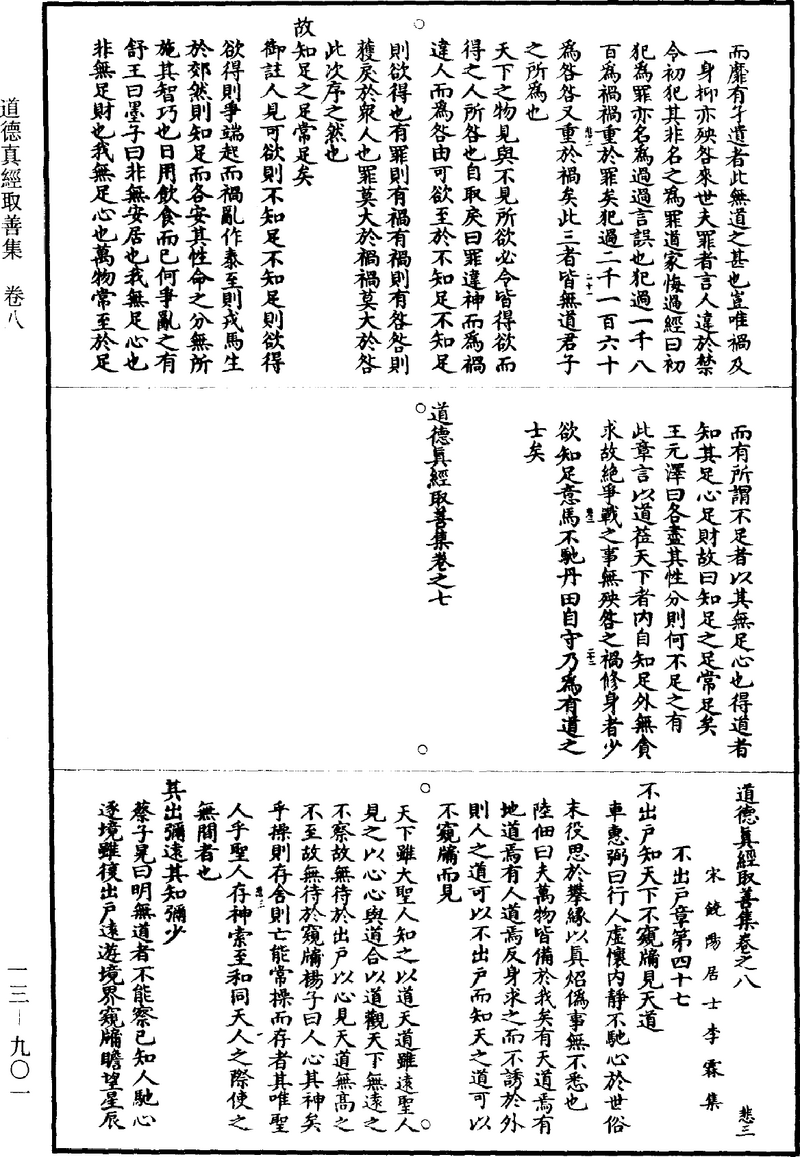 而靡有孑遺者此無道之甚也豈唯禍及
一身抑亦殃咎來世夫罪者言人違於禁
令初犯其非名之為罪道家悔過經曰初
犯為罪亦名為過過言誤也犯過一千八
百為禍禍重於罪矣犯過二千一百六十
為咎咎又重於禍矣此三者皆無道君子
之所為也
天下之物見與不見所欲必令皆得欲而
得之人所咎也自取戾曰罪違神而為禍
違人而為咎由可欲至於不知足不知足
則欲得也有罪則有禍有禍則有咎咎則
獲戾於衆人也罪莫大於禍禍莫大於咎
此次序之然也
故知足之足常足矣
御註人見可欲則不知足不知足則欲得
欲得則爭端起而禍亂作泰至則戎馬生
於郊然則知足而各安其性命之分無所
施其智巧也日用飲食而已何爭亂之有
舒王曰墨子曰非無安居也我無足心也
非無足財也我無足心也萬物常至於足
而有所謂不足者以其無足心也得道者
知其足心足財故曰知足之足常足矣
王元澤曰各盡其性分則何不足之有
此章言以道莅天下者內自知足外無貪
求故絶爭戰之事無殃咎之禍修身者少
欲知足意馬不馳丹田自守乃為有道之
士矣
道德眞經取善集卷之七
道德眞經取善集卷之八
悲三
宋饒陽居士李霖集
不出戶章第四十七
不出戶知天下不窺牖見天道
車惠弼曰行人虛懷內靜不馳心於世俗
末役思於攀緣以真炤僞事無不悉也
陸佃曰夫萬物皆備於我矣有天道焉有
地道焉有人道焉反身求之而不誘於外
則人之道可以不出戶而知天之道可以
不窺牖而見
天下雖大聖人知之以道天道雖遠聖人
見之以心心與道合以道觀天下無遠之
不察故無待於出戶以心見天道無高之
不至故無待於窺牖楊子曰人心其神矣
乎操則存舍則亡能常操而存者其唯聖
人乎聖人存神索至和同天人之際使之
無間者也
其出彌遠其知彌少
蔡子晃曰明無道者不能察己知人馳心
逐境雖復出戶遠遊境界窺牖瞻望星辰
道德真經取善集　卷八
一三－九〇一